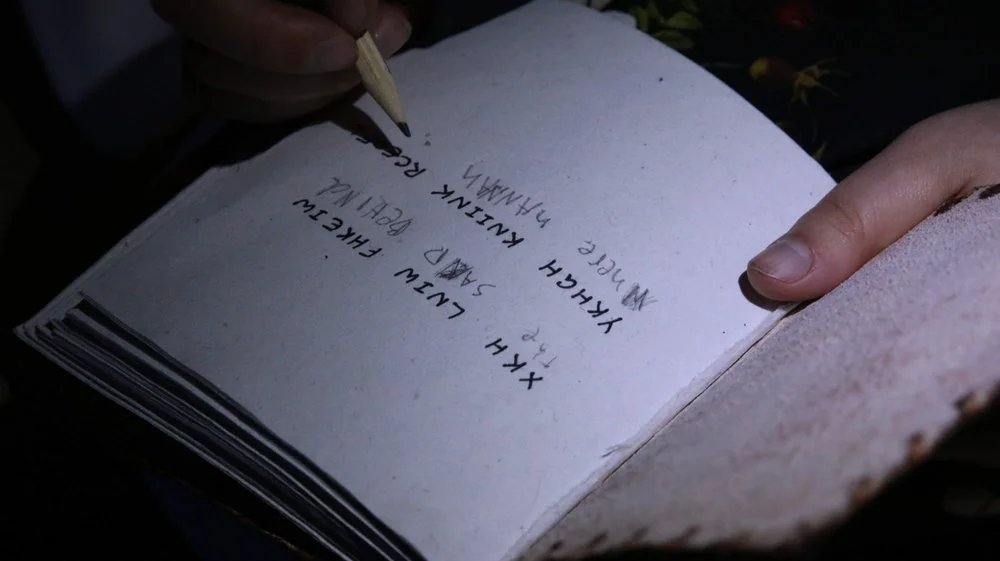 XKH LNIW FHKEIW
the SAND BEHINd
YKHGH KNIINK
Where hANNAh